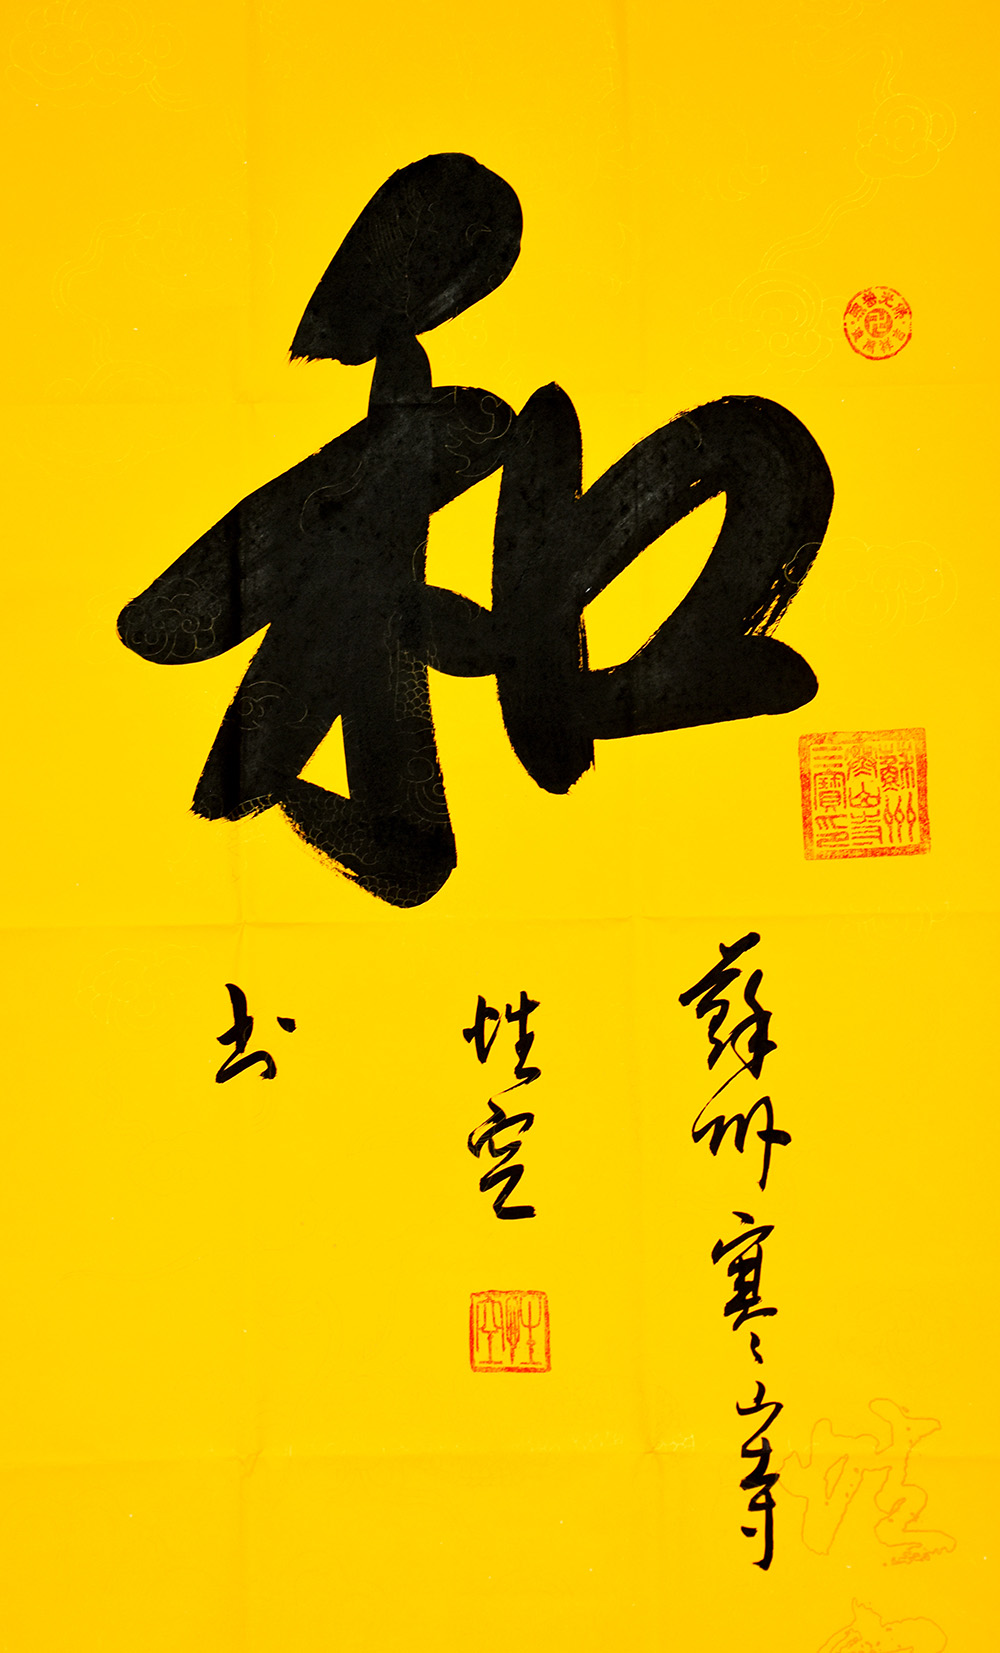 和
蘇州寒山寺
性空
书
蘇州寒山寺三寶印
性空